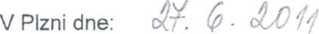 V Plzni dne: 27. 6. 2011